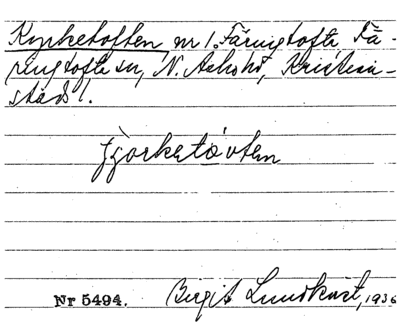 Kyrketoften nr 1. Färingtofta Fä-
ringtofta sn, N. Åsbohd, Kristian-
stads l.
Nr 5494. Birgit Lundkvist, 1936